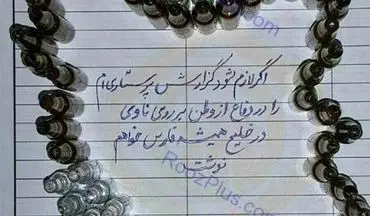 اگر لازم شود گزارش پرستاری ام
را در دفاع از وطن بر روی ناوی
در خلیج همیشه فارس خواهم
نوشت
RoozPlus.com